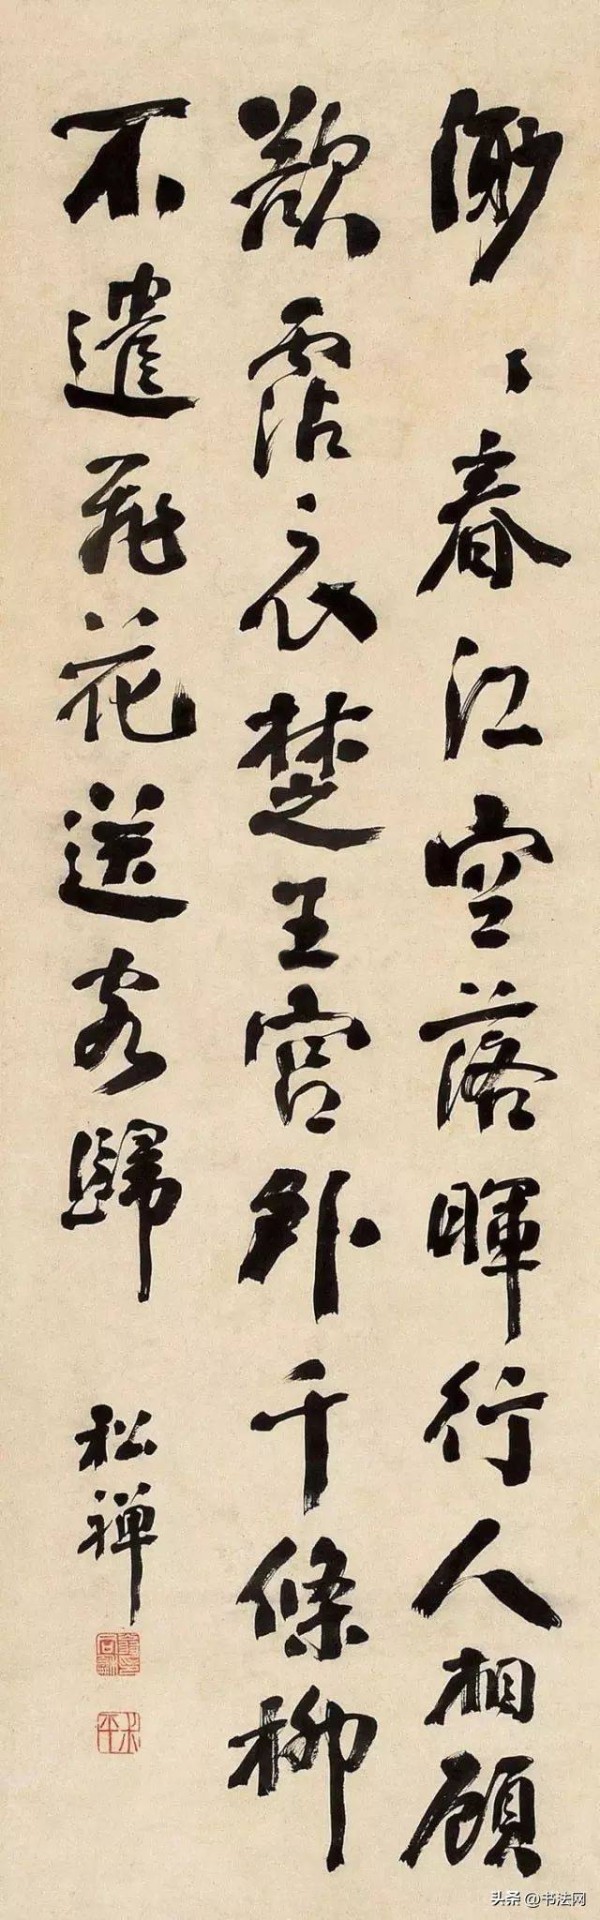 渺〻春江空落暉行人相顧
欲霑衣楚王宮外千條柳
不遣飛花送客歸
松禪
翁同龢印
叔平
头条 @书法网